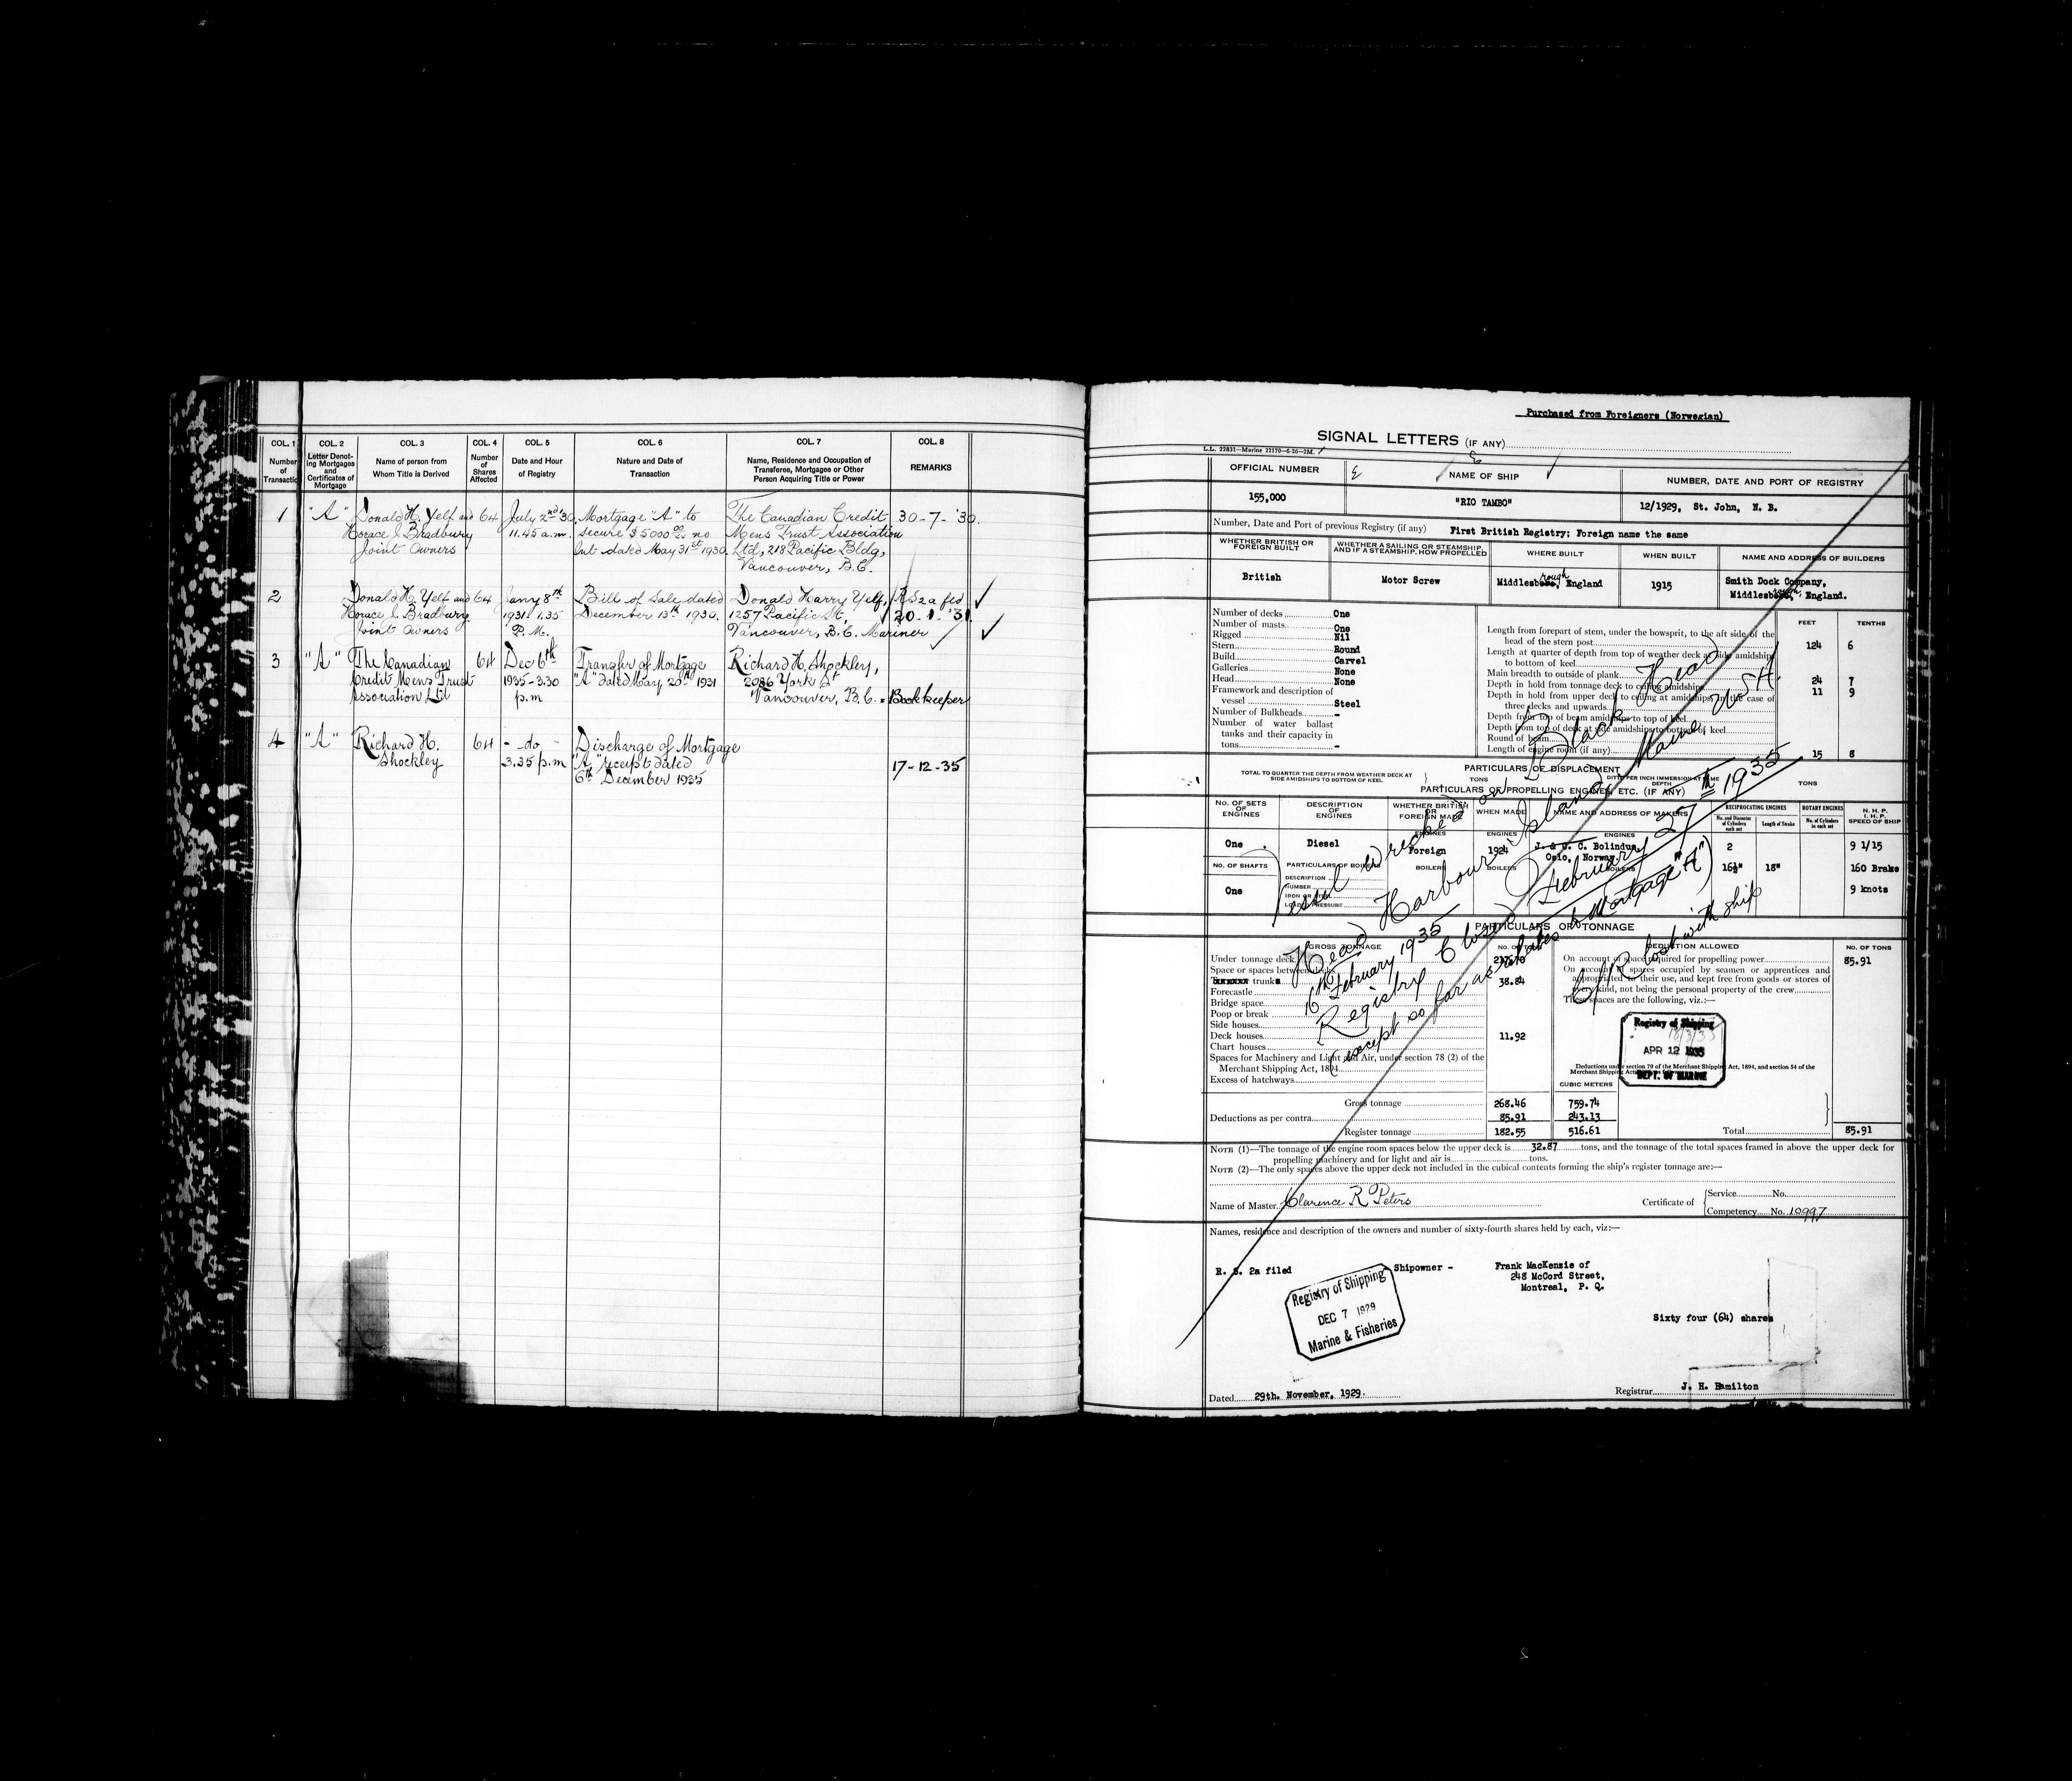 COL. 1
COL. 2
COL. 3
COL. 4
COL. 5
COL. 6
COL. 7
COL. 8
Number of Transaction
Letter Denoting Mortgages and Certificates of Mortgage
Name of person from Whom Title is Derived
Number of Shares Affected
Date and Hour of Registry
Nature and Date of Transaction
Name, Residence and Occupation of Transferee, Mortgagee or Other Person Acquiring Title or Power
REMARKS
1 "A" Donald H. Yelf and 64 July 2nd '30, Mortgage "A" to The Canadian Credit 30-7-'30.
Horace J. Bradbury 11.45 a.m. secure $5000 00/xx no Mens Trust Association
Joint Owners Int dated May 31st 1930, Ltd, 218 Pacific Bldg,
Vancouver, B.C.
2 Donald H. Yelf and 64 Jany 8th Bill of Sale dated Donald Harry Yelf, RS 2a fed
Horace J. Bradbury 1931 1.35 December 13th 1930. 1257 Pacific St, 20-1-'31
Joint Owners P.M. Vancouver, B.C. Mariner
3 "A" The Canadian 64 Dec 6th Transfer of Mortgage Richard H. Shockley,
Credit Mens Trust 1935-3.30 "A" dated May 20th 1931 2086 York St
Association Ltd p.m Vancouver, B.C. = Bookkeeper
4 "A" Richard H. 64 - do - Discharge of Mortgage
Shockley 3.35 p.m "A" receipt dated 17-12-35
6th December 1935
Purchased from Foreigners (Norwegian)
SIGNAL LETTERS (IF ANY)
L.L. 22831—Marine 22170—6-26—2M.
OFFICIAL NUMBER
NAME OF SHIP
NUMBER, DATE AND PORT OF REGISTRY
155,000
"RIO TAMBO"
12/1929, St. John, N. B.
Number, Date and Port of previous Registry (if any) First British Registry; Foreign name the same
WHETHER BRITISH OR FOREIGN BUILT
WHETHER A SAILING OR STEAMSHIP, AND IF A STEAMSHIP, HOW PROPELLED
WHERE BUILT
WHEN BUILT
NAME AND ADDRESS OF BUILDERS
British
Motor Screw
Middlesborough, England
1915
Smith Dock Company,
Middlesborough, England.
Number of decks One
Number of masts One
Rigged Nil
Stern Round
Build Carvel
Galleries None
Head None
Framework and description of
vessel Steel
Number of Bulkheads -
Number of water ballast
tanks and their capacity in
tons -
FEET TENTHS
Length from forepart of stem, under the bowsprit, to the aft side of the
head of the stern post 124 6
Length at quarter of depth from top of weather deck at side amidships
to bottom of keel
Main breadth to outside of plank 24 7
Depth in hold from tonnage deck to ceiling amidships 11 9
Depth in hold from upper deck to ceiling at amidships, in the case of
three decks and upwards
Depth from top of beam amidships to top of keel
Depth from top of deck at side amidships to bottom of keel
Round of beam
Length of engine room (if any) 15 8
PARTICULARS OF DISPLACEMENT
TOTAL TO QUARTER THE DEPTH FROM WEATHER DECK AT SIDE AMIDSHIPS TO BOTTOM OF KEEL
TONS
DITTO PER INCH IMMERSION AT SAME DEPTH
TONS
PARTICULARS OF PROPELLING ENGINES, ETC. (IF ANY)
No. OF SETS OF ENGINES
DESCRIPTION OF ENGINES
WHETHER BRITISH OR FOREIGN MADE
WHEN MADE
NAME AND ADDRESS OF MAKERS
RECIPROCATING ENGINES
ROTARY ENGINES
N. H. P.
I. H. P.
SPEED OF SHIP
No. and Diameter of Cylinders each set
Length of Stroke
No. of Cylinders in each set
ENGINES
ENGINES
ENGINES
One
Diesel
Foreign
1924
J. & C. C. Bolindus,
Oslo, Norway.
2
16½"
18"
9 1/15
160 Brake
9 knots
NO. OF SHAFTS
One
PARTICULARS OF BOILERS
DESCRIPTION
NUMBER
IRON OR STEEL
LOADED PRESSURE
BOILERS
BOILERS
BOILERS
PARTICULARS OF TONNAGE
GROSS TONNAGE
NO. OF TONS
DEDUCTION ALLOWED
NO. OF TONS
Under tonnage deck 217.70
Space or spaces between decks
trunks 38.84
Forecastle
Bridge space
Poop or break
Side houses
Deck houses 11.92
Chart houses
Spaces for Machinery and Light and Air, under section 78 (2) of the
Merchant Shipping Act, 1894
Excess of hatchways
On account of space required for propelling power 85.91
On account of spaces occupied by seamen or apprentices and
appropriated to their use, and kept free from goods or stores of
every kind, not being the personal property of the crew
These spaces are the following, viz.:—
Registry of Shipping
APR 12 1935
DEPT. OF MARINE
Deductions under section 79 of the Merchant Shipping Act, 1894, and section 54 of the
Merchant Shipping Act
CUBIC METERS
Gross tonnage 268.46 759.74
Deductions as per contra 85.91 243.13
Register tonnage 182.55 516.61
Total 85.91
NOTE (1)—The tonnage of the engine room spaces below the upper deck is 32.87 tons, and the tonnage of the total spaces framed in above the upper deck for
propelling machinery and for light and air is tons.
NOTE (2)—The only spaces above the upper deck not included in the cubical contents forming the ship's register tonnage are:—
Name of Master Clarence R Peters
Certificate of
Service No.
Competency No. 10997
Names, residence and description of the owners and number of sixty-fourth shares held by each, viz:—
R. S. 2a filed
Shipowner -
Frank MacKenzie of
248 McCord Street,
Montreal, P. Q.
Registry of Shipping
DEC 7 1929
Marine & Fisheries
Sixty four (64) shares
Dated 29th. November, 1929.
Registrar J. H. Hamilton
Vessel wrecked on Black Head
Head Harbour Island Maine USA.
16th February 1935
Registry Closed February 27th 1935
(except so far as relates to Mortgage "A")
C/R lost with ship